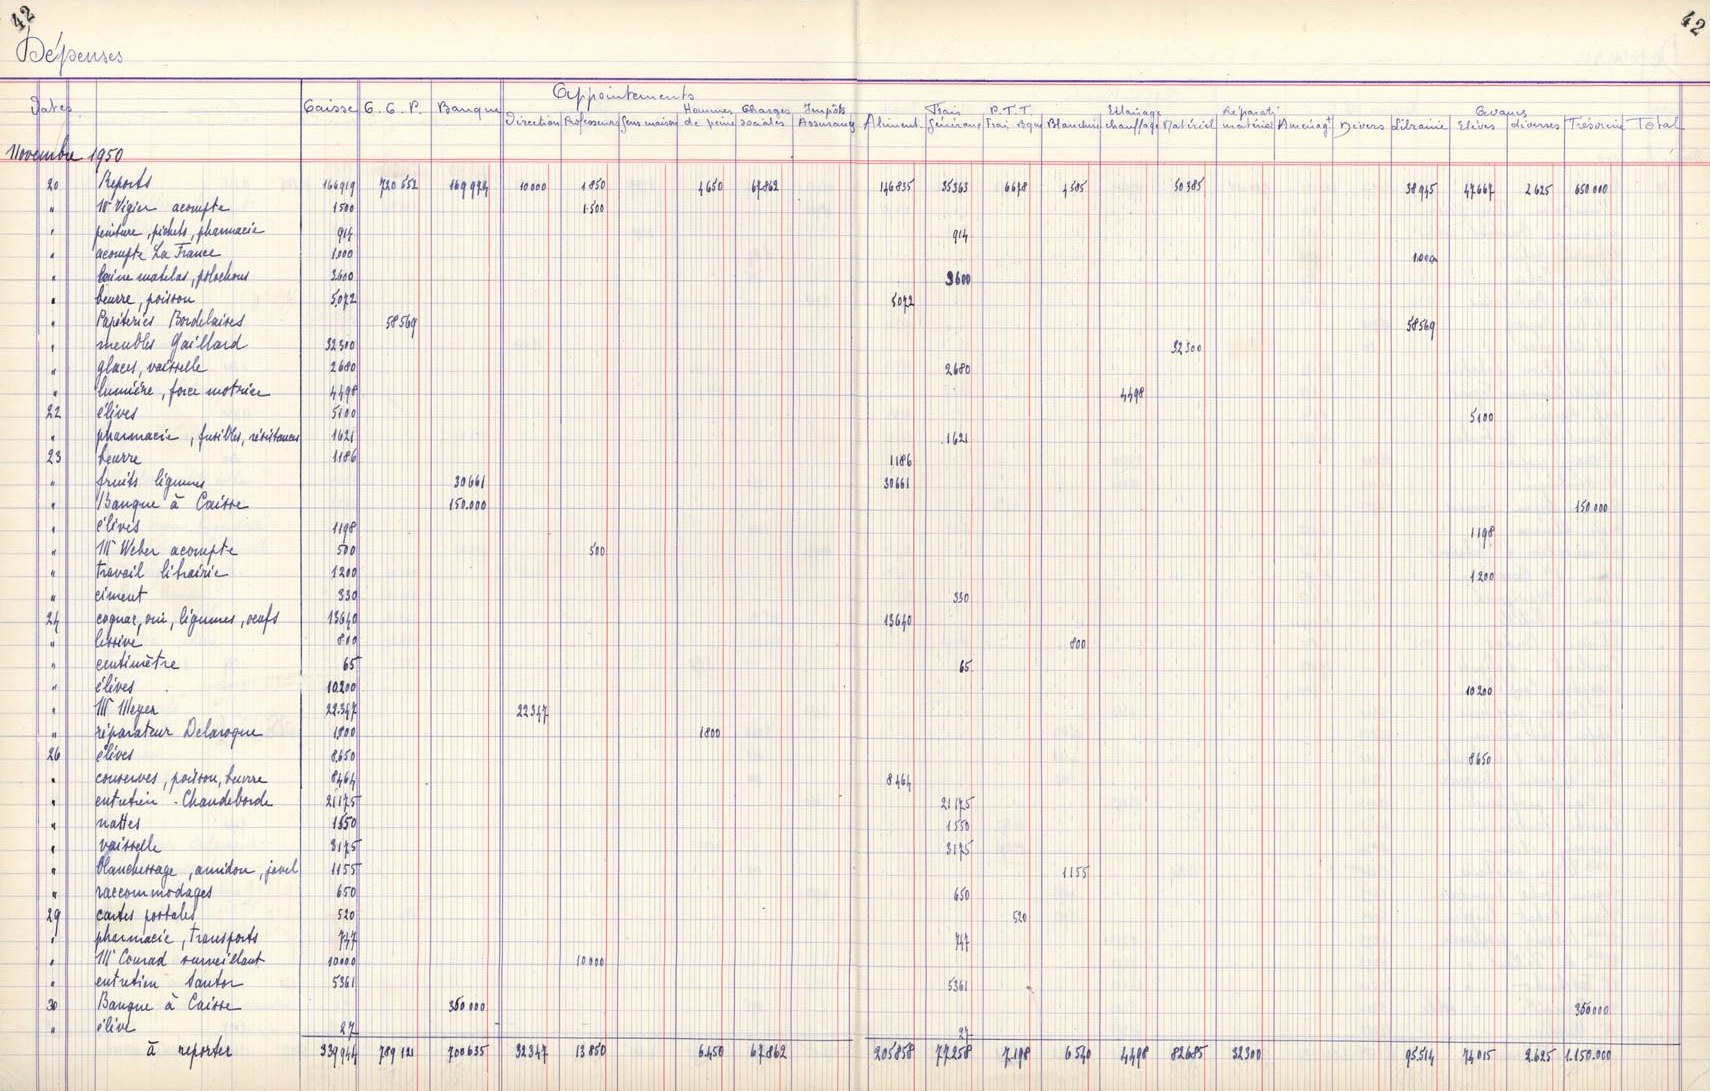 42 42
Dépenses
Appointements
Dates Caisse C.C.P. Banque Direction Professeurs Gens maison Hommes de peine Charges sociales Impôts Assurances Aliment. Frais Généraux P.T.T. Frais Bque Blanchie Eclairage chauffage Matériel Réparati matériel Aménagt Divers Librairie Avances Elèves diverses Trésorerie Total
Novembre 1950
20 Reports 166919 720552 169974 10000 1850 4650 67862 146835 35363 6678 4585 50385 38945 47667 2625 650000
" Mr Vigier acompte 1500 1500
" peinture, pichets, pharmacie 914 914
" acompte La France 1000 1000
" laine matelas, polochons 3600 3600
" beurre, poisson 5072 5072
" Papéteries Bordelaises 58569 58569
" meubles Gaillard 32300 32300
" glaces, vaisselle 2680 2680
" lumière, force motrice 4498 4498
22 élèves 5100 5100
" pharmacie, fusibles, résistances 1621 1621
23 beurre 1186 1186
" fruits légumes 30661 30661
" Banque à Caisse 150.000 150.000
" élèves 1198 1198
" Mr Weber acompte 500 500
" travail librairie 1200 1200
" ciment 330 330
24 cognac, vin, légumes, oeufs 13640 13640
" lessive 800 800
" centimètre 65 65
" élèves 10200 10200
" Mr Meyer 22.347 22347
" réparateur Delaroque 1800 1800
26 élèves 8650 8650
" conserves, poisson, beurre 8464 8464
" entretien - Chaudeborde 21175 21175
" nattes 1550 1550
" vaisselle 3175 3175
" blanchissage, amidon, javel 1155 1155
" raccommodages 650 650
29 cartes postales 520 520
" pharmacie, transports 747 747
" Mr Conrad surveillant 10000 10.000
" entretien Santor 5361 5361
30 Banque à Caisse 350 000 350000
" élève 27 27
à reporter 339944 789121 700635 32347 13850 6450 67862 205858 77258 7.198 6540 4498 82685 32300 95514 74015 2.625 1.150.000